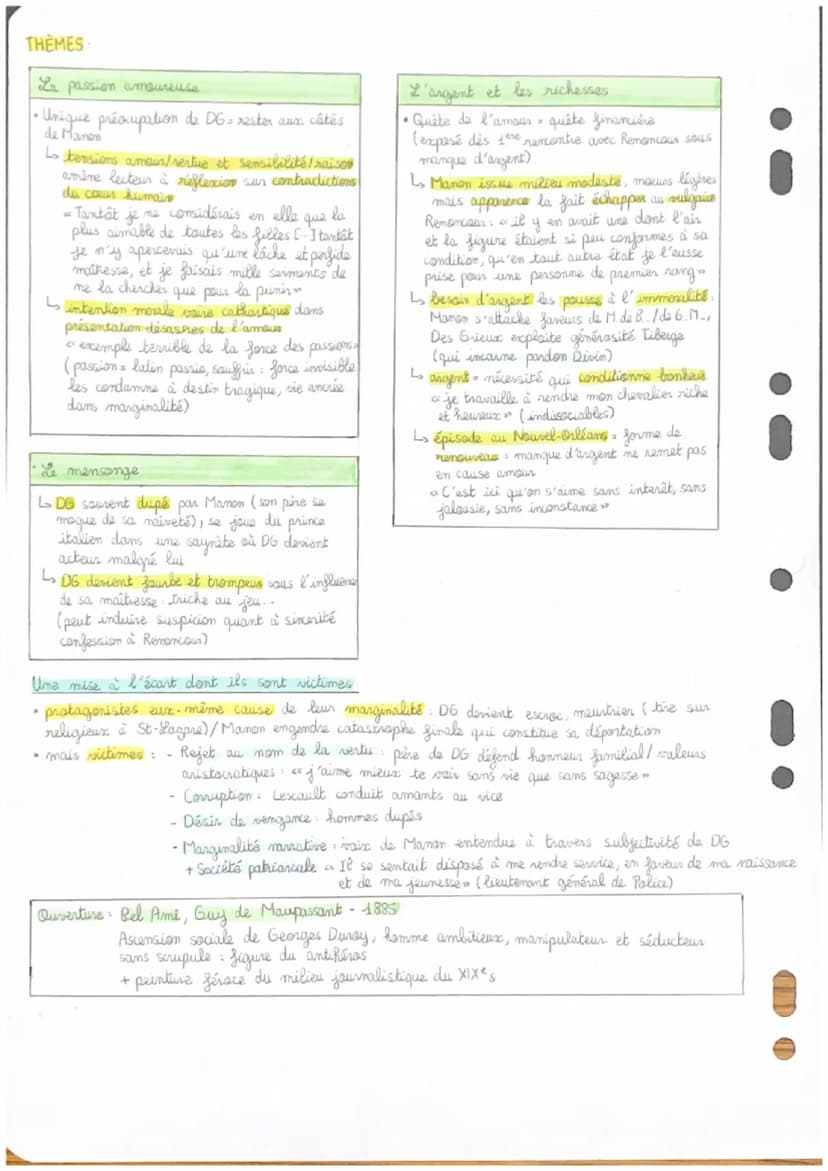 THÈMES
La passion amoureuse
• Unique préoccupation de DG = rester aux côtés
de Manon
↳ tensions amour/vertue et sensibilité/raison
amène lecteur à réflexion sur contradictions
du coeur humain
« Tantôt je ne considérais en elle que la
plus aimable de toutes les filles [...] tantôt
je n'y apercevais qu'une lâche et perfide
maîtresse, et je faisais mille serments de
ne la chercher que pour la punir »
↳ intention morale voire cathartique dans
présentation désastres de l'amour
« exemple terrible de la force des passions »
(passion = latin passio, souffrir : force invisible
les condamne à destin tragique, vie ancrée
dans marginalité)
• Le mensonge
↳ DG souvent dupé par Manon (son père se
moque de sa naïveté), se joue du prince
italien dans une saynète où DG devient
acteur malgré lui
↳ DG devient fourbe et trompeur sous l'influence
de sa maîtresse : triche au jeu...
(peut induire suspicion quant à sincérité
confession à Renoncour)
L'argent et les richesses
• Quête de l'amour = quête financière
(exposé dès 1ère rencontre avec Renoncour sous
manque d'argent)
↳ Manon issue milieu modeste, moeurs légères
mais apparence la fait échapper au vulgaire
Renoncour : « il y en avait une dont l'air
et la figure étaient si peu conformes à sa
condition, qu'en tout autre état je l'eusse
prise pour une personne de premier rang »
↳ besoin d'argent les pousse à l'immoralité :
Manon s'attache faveurs de M. de B... / de G. M...,
Des Grieux exploite générosité Tiberge
(qui incarne pardon Divin)
↳ argent = nécessité qui conditionne bonheur
« je travaille à rendre mon chevalier riche
et heureux » (indissociables)
↳ épisode au Nouvel-Orléans = forme de
renouveau : manque d'argent ne remet pas
en cause amour
« C'est ici qu'on s'aime sans interêt, sans
jalousie, sans inconstance »
Une mise à l'écart dont ils sont victimes
• protagonistes eux-même cause de leur marginalité : DG devient escroc, meurtrier (tire sur
religieux à St-Lazare) / Manon engendre catastrophe finale qui constitue sa déportation
• mais victimes : - Rejet au nom de la vertu : père de DG défend honneur familial / valeurs
aristocratiques : « j'aime mieux te voir sans vie que sans sagesse »
- Corruption : Lescault conduit amants au vice
- Désir de vengance : hommes dupés
- Marginalité narrative : voix de Manon entendue à travers subjectivité de DG
+ Société patriarcale « Il se sentait disposé à me rendre service, en faveur de ma naissance
et de ma jeunesse » (lieutenant général de Police)
Ouverture : Bel Ami, Guy de Maupassant - 1885
Ascension sociale de Georges Duroy, homme ambitieux, manipulateur et séducteur
sans scrupule : figure du antihéros
+ peinture féroce du milieu journalistique du XIXe s